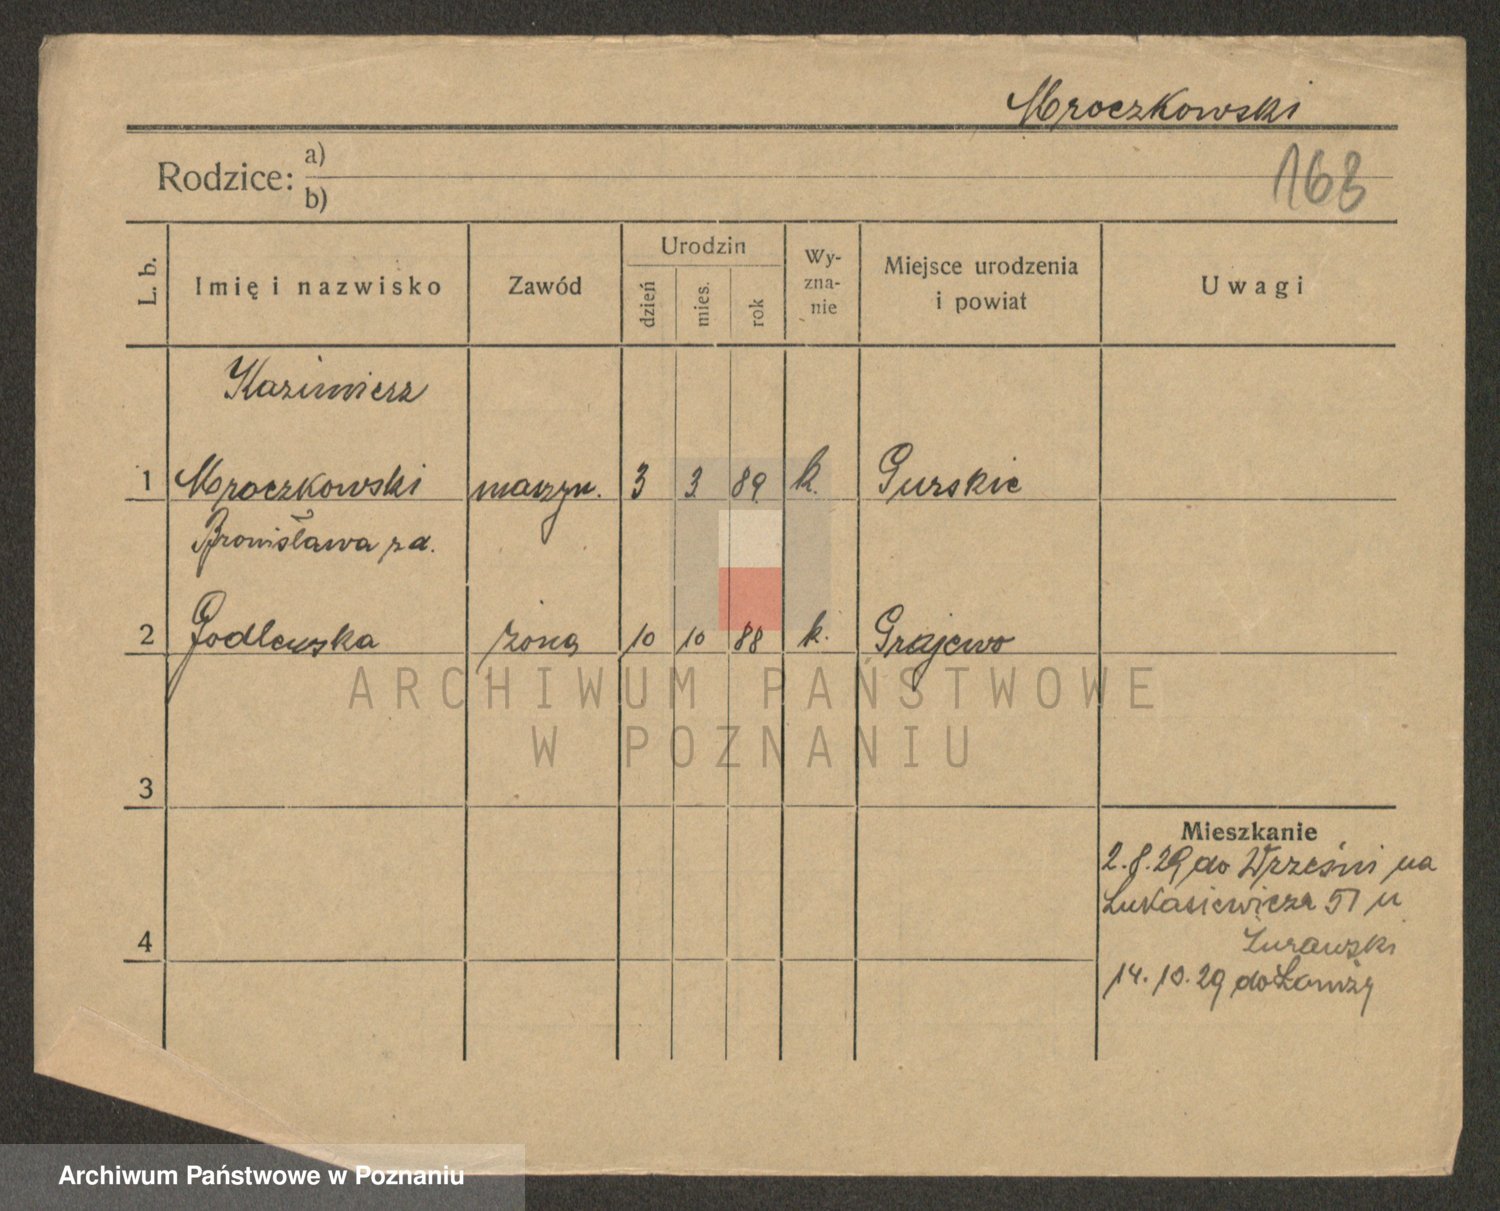 Mroczkowski
168
Rodzice: a)
b)
L. b.
Imię i nazwisko
Zawód
Urodzin
dzień
mies.
rok
Wy-
zna-
nie
Miejsce urodzenia
i powiat
Uwagi
Kazimierz
1 Mroczkowski maszyn. 3 3 89 k. Gurskie
Bronisława z d.
2 Podlewska żona 10 10 88 k. Grajewo
3
4
Mieszkanie
2.8.29 do Wrześni na
Łukasiewicza 51 u
Żurawski
14.10.29 do Łomży
ARCHIWUM PAŃSTWOWE
W POZNANIU
Archiwum Państwowe w Poznaniu